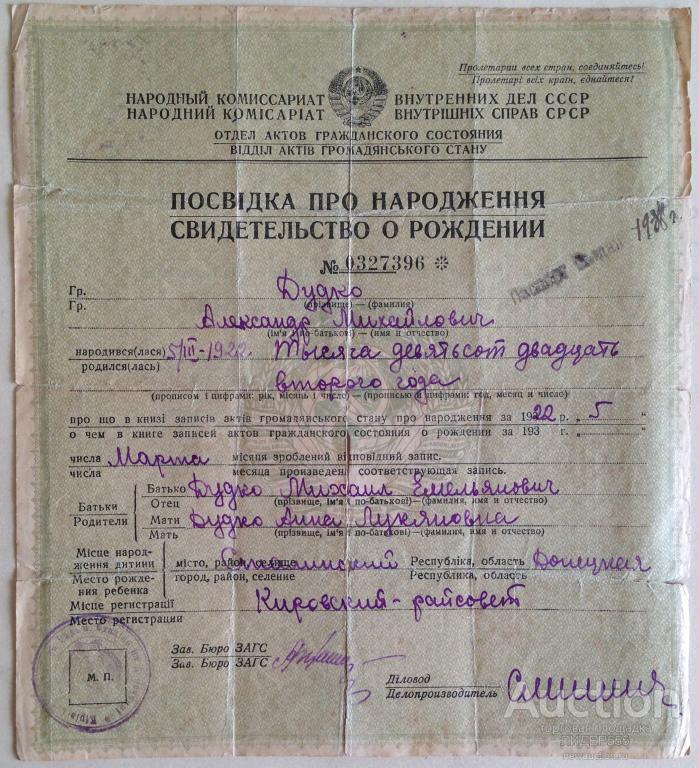 Пролетарии всех стран, соединяйтесь!
Пролетарі всіх країн, єднайтеся!
НАРОДНЫЙ КОМИССАРИАТ ВНУТРЕННИХ ДЕЛ СССР
НАРОДНИЙ КОМІСАРІАТ ВНУТРІШНІХ СПРАВ СРСР
ОТДЕЛ АКТОВ ГРАЖДАНСКОГО СОСТОЯНИЯ
ВІДДІЛ АКТІВ ГРОМАДЯНСЬКОГО СТАНУ
ПОСВІДКА ПРО НАРОДЖЕННЯ
СВИДЕТЕЛЬСТВО О РОЖДЕНИИ
Паспорт 1938 г.
№ 0327396 *
Гр. Дудко
Гр. (прізвище) — (фамилия)
Александр Михайлович
(ім'я і по-батькові) — (имя и отчество)
народився(лася) 5/III-1922. Тысяча девятьсот двадцать
родился(лась)
второго года
(прописом і цифрами: рік, місяць і число) — (прописью и цифрами: год, месяц и число)
про що в книзі записів актів громадянського стану про народження за 1922 р. „ 5 "
о чем в книге записей актов гражданского состояния о рождении за 193 г. „ "
числа Марта місяця зроблений відповідний запис.
числа месяца произведена соответствующая запись.
Батьки Батько Дудко Михаил Емельянович
Родители Отец (прізвище, ім'я і по-батькові)—(фамилия, имя и отчество)
Мати Дудко Анна Лукяновна
Мать (прізвище, ім'я і по-батькові)—(фамилия, имя и отчество)
Місце народження дитини місто, район, селище Республіка, область Донецкая
Место рождения ребенка город, район, селение Республика, область
Місце регистрації Кировский-райсовет
Место регистрации
Зав. Бюро ЗАГС
Зав. Бюро ЗАГС
М. П.
Діловод
Делопроизводитель
Auction
торговая площадка
ЛИДЕР555
newauction.ru